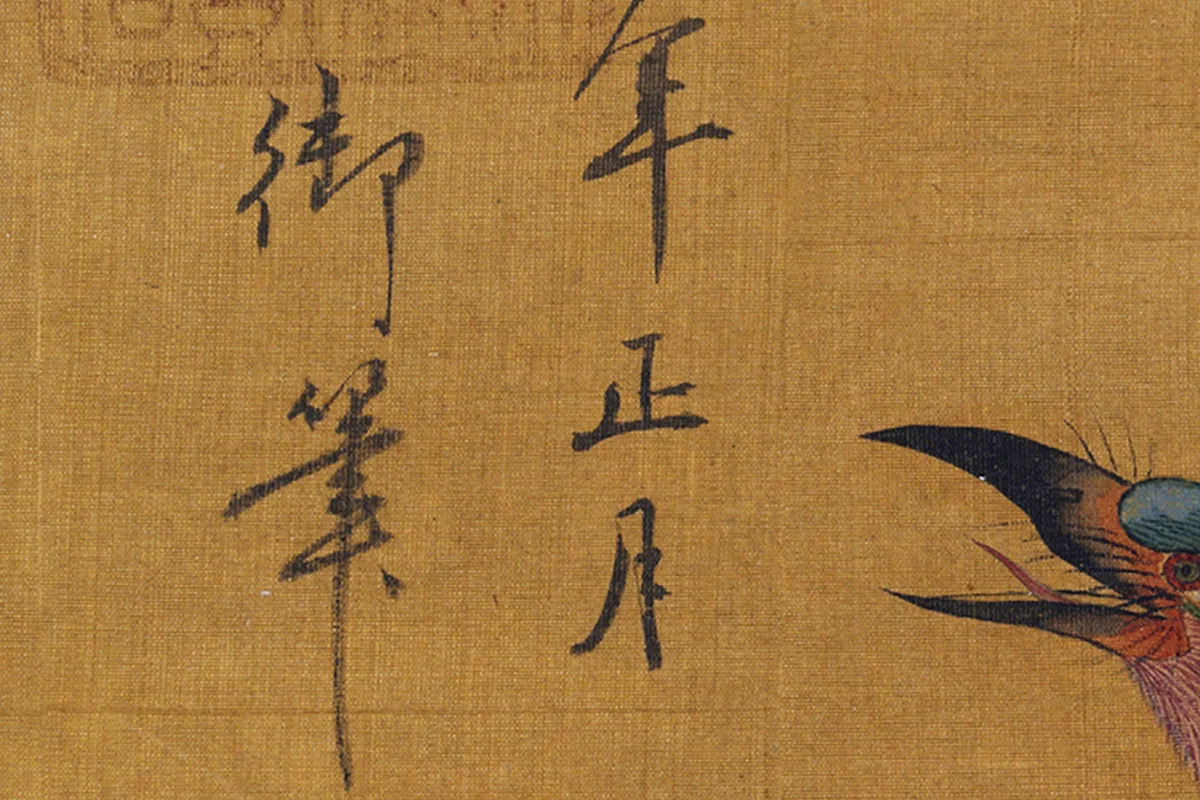 年正月
御筆